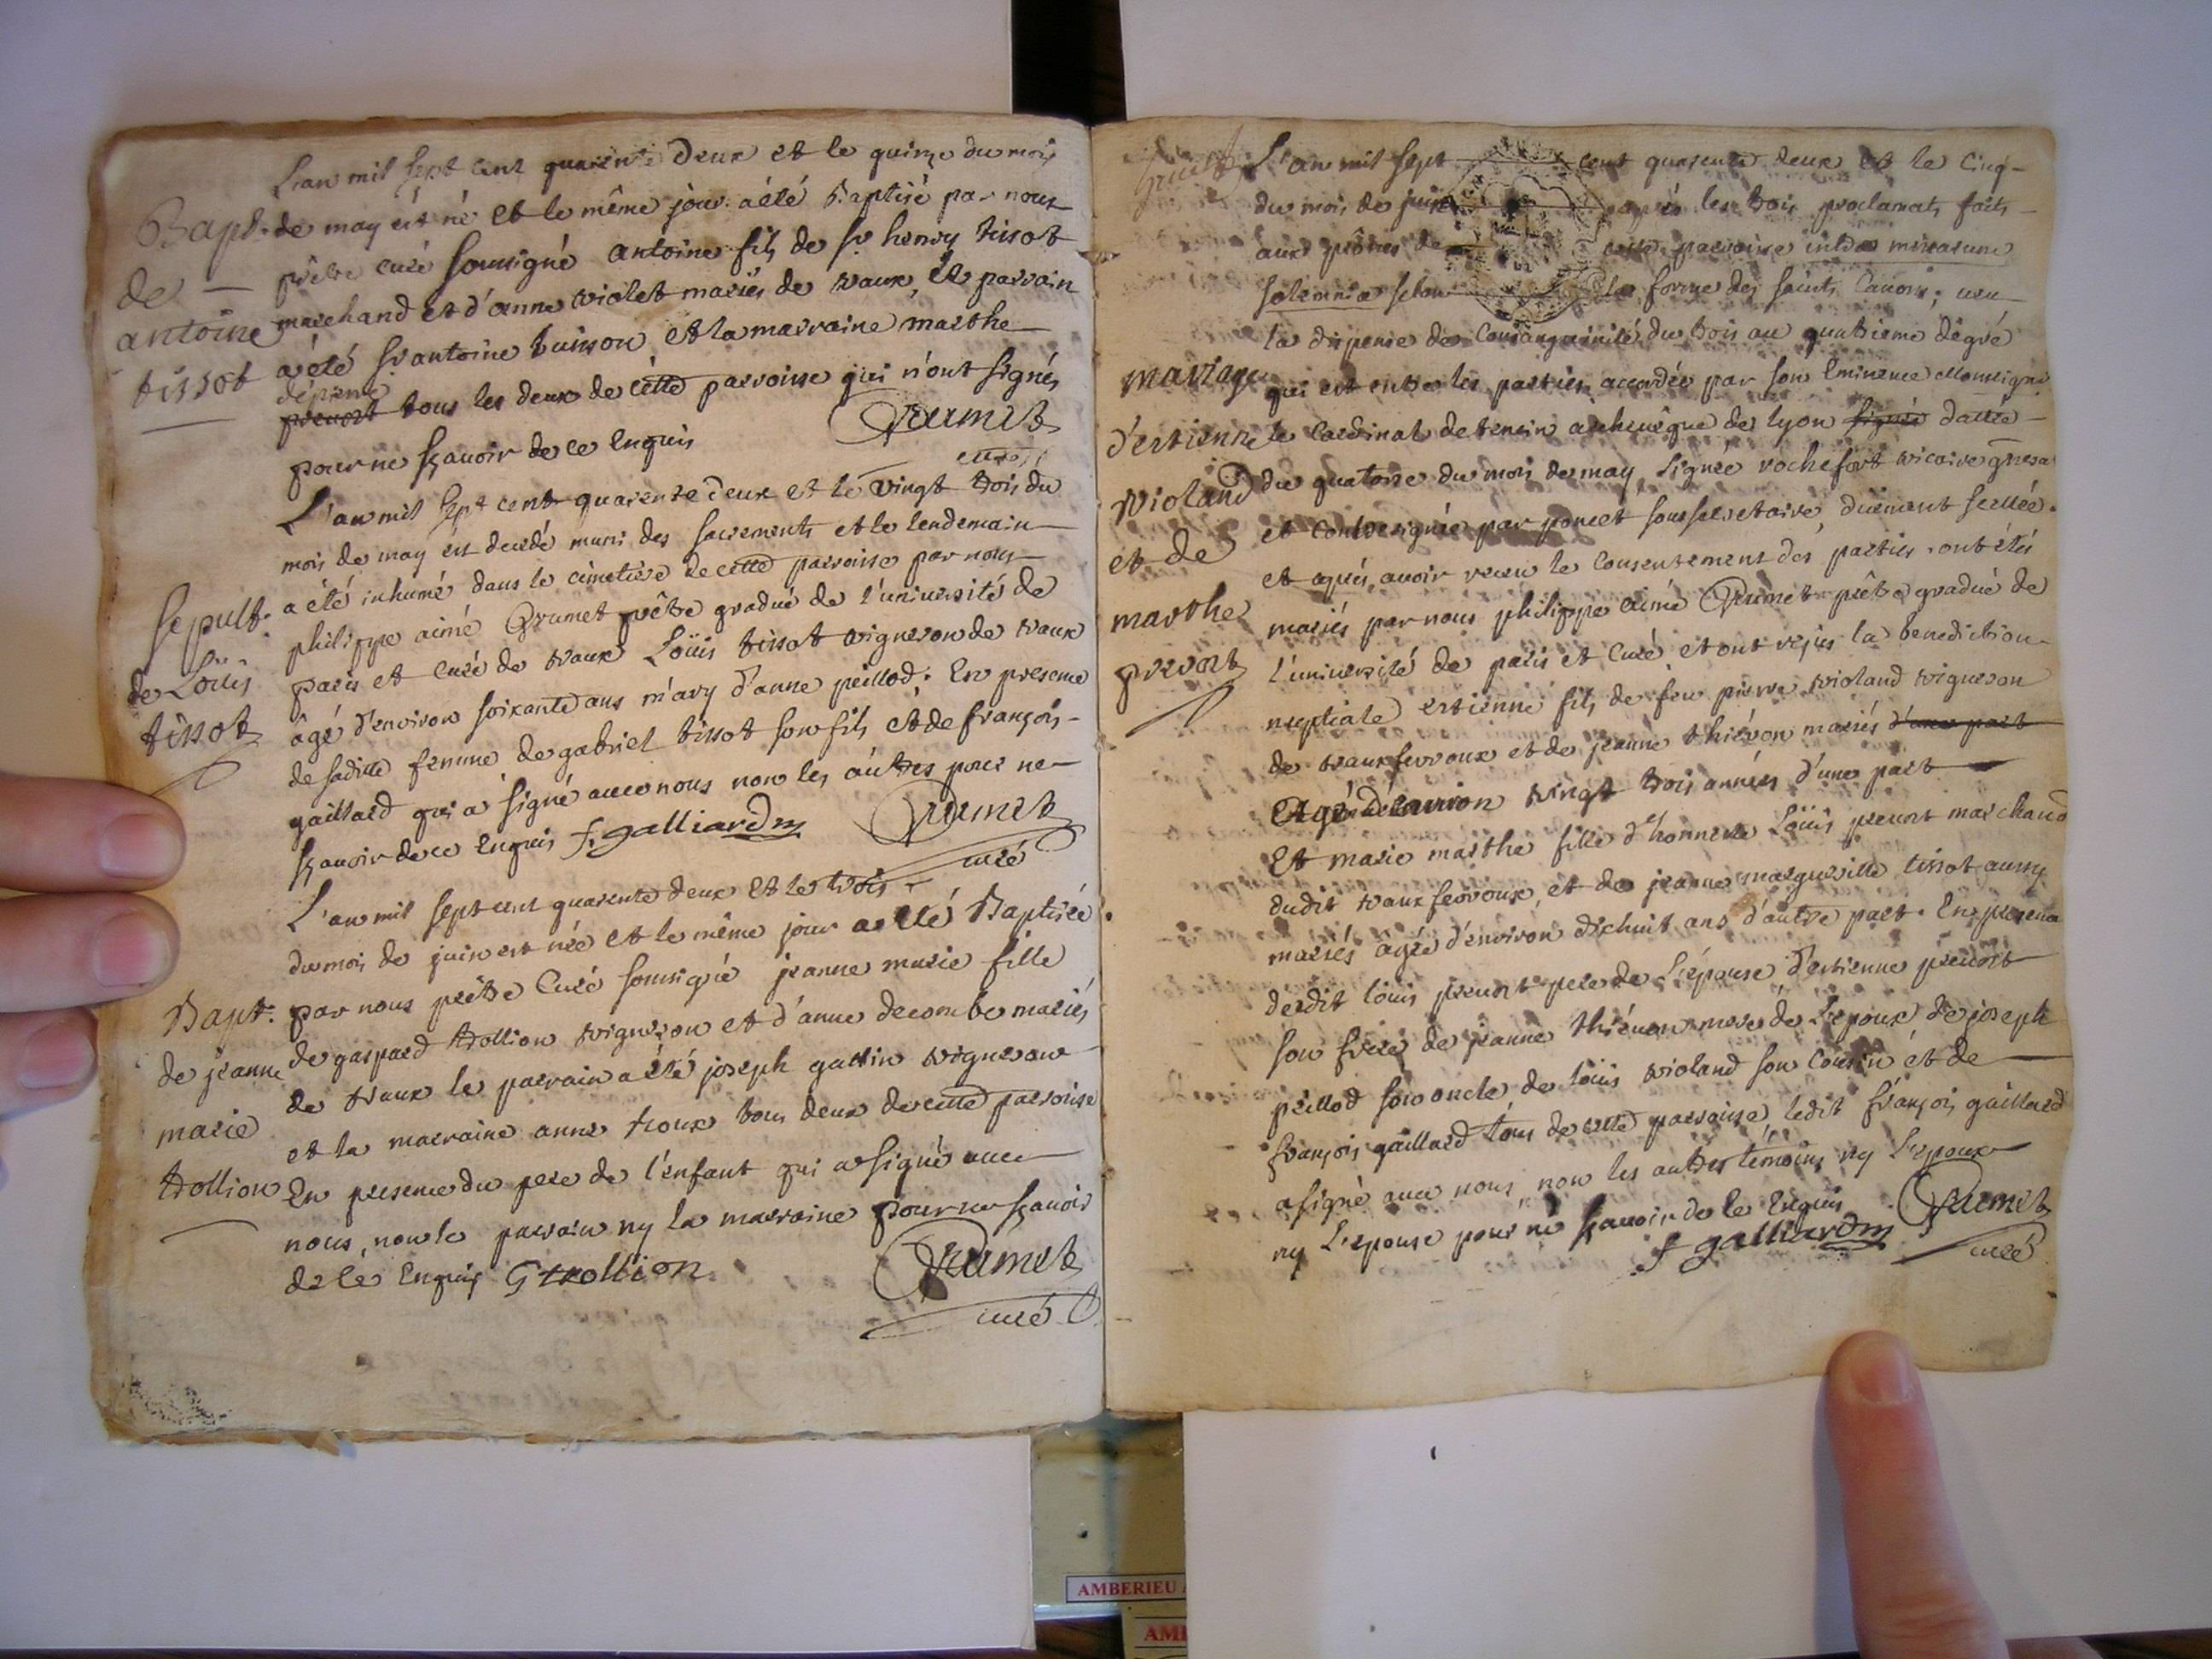 L'an mil sept cent quarente deux et le quinze du mois
de may est né et le même jour a été Baptisé par nous
prêtre curé soussigné antoine fils de sr henry tissot
marchand et d'anne violet mariés de vaux, le parrain
a été sr antoine buisson et la marraine marthe
déprené
prevost tous les deux de cette parroisse qui n'ont signés
pour ne sçavoir de ce enquis Grumet
curé
Bapt.
de
antoine
tissot
L'an mil sept cent quarente deux et le vingt trois du
mois de may est decedé muni des sacrements et le lendemain
a été inhumé dans le cimetiere de cette parroisse par nous
philippe aimé Grumet prêtre gradué de l'université de
paris et curé de vaux Loüis tissot vigneron de vaux
âgé d'environ soixante ans mary d'anne peillod. En presence
de saditte femme de gabriel tissot son fils et de françois
gaillard qui a signé avec nous non les autres pour ne
sçavoir de ce enquis f. galliardm Grumet
curé
Sepult.
de Loüis
tissot
L'an mil sept cent quarente deux et le trois
du mois de juin est née et le même jour a été Baptisée
par nous prêtre curé soussigné jeanne marie fille
de gaspard trollion vigneron et d'anne decombe mariés
de vaux le parrain a été joseph gallin vigneron
et la marraine anne roux tous deux de cette parroisse
En presence du pere de l'enfant qui a signé avec
nous, non le parrain ny la marraine pour ne sçavoir
de ce enquis G trollion Grumet
curé
Bapt.
de jeanne
marie
trollion
L'an mil sept cent quarente deux et le cinq
du mois de juin après les trois proclamats faits
aux prônes de cette parroisse intra missarum
solemnia selon la forme des saints canons; veu
la dispense de consanguinité du trois au quatrieme dégré
qui est entre les parties accordée par son Eminence Monseignr
le Cardinal de tencin archevêque de lyon signée dattée
du quatorse du mois de may, signée rochefort vicaire gñeral
et contresignée par poncet soussecretaire, duement scellée.
et aprés avoir receu le consentement des parties ont étés
mariés par nous philippe aimé Grumet prêtre gradué de
l'université de paris et curé et ont reçus la benediction
nuptiale estienne fils de feu pierre violand vigneron
de vaux fevroux et de jeanne thiévon mariés d'une part
agé d'environ vingt trois années d'une part
Et marie marthe fille d'honnete Loüis prevost marchand
dudit vaux fevroux, et de jeanne marguerite tissot aussy
mariés agée d'environ dixhuit ans d'autre part. En presence
dudit louis prevost pere de l'épouse d'estienne prevost
son frere de jeanne thiévon mere de l'epoux de joseph
peillod son oncle de louis violand son cousin et de
françois gaillard tous de cette parroisse, ledit françois gaillard
a signé avec nous, non les autres témoins ny l'epoux
ny l'epouse pour ne sçavoir de ce enquis Grumet
f galliardm curé
mariage
d'estienne
violand
et de
marthe
prevost
AMBERIEU
AMB